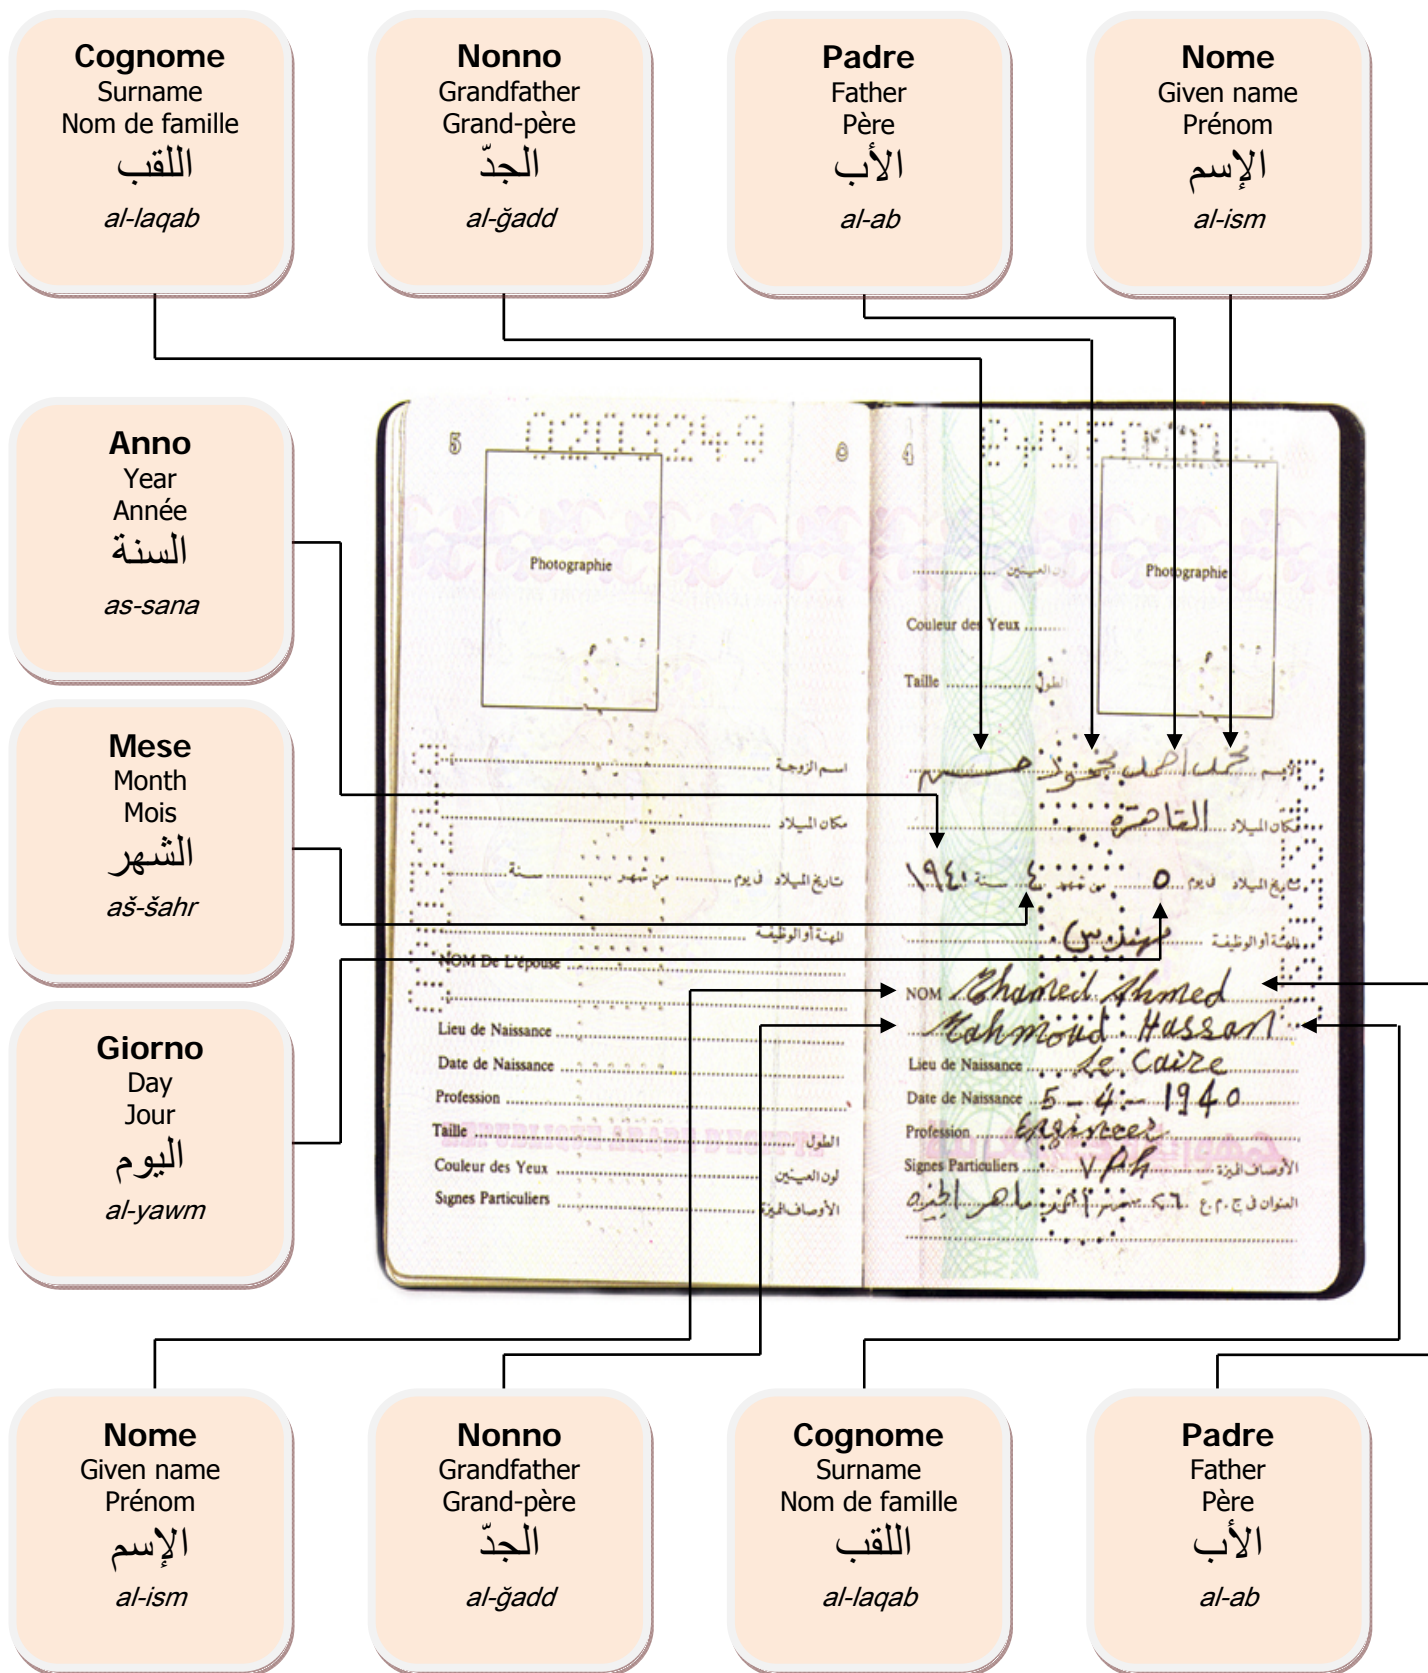 Cognome
Surname
Nom de famille
اللقب
al-laqab
Nonno
Grandfather
Grand-père
الجدّ
al-ğadd
Padre
Father
Père
الأب
al-ab
Nome
Given name
Prénom
الإسم
al-ism
Anno
Year
Année
السنة
as-sana
Mese
Month
Mois
الشهر
aš-šahr
Giorno
Day
Jour
اليوم
al-yawm
5
0203249
Photographie
اسم الزوجة
مكان الميلاد
تاريخ الميلاد في يوم من شهر سنة
المهنة أو الوظيفة
NOM De L'épouse
Lieu de Naissance
Date de Naissance
Profession
Taille الطول
Couleur des Yeux لون العينين
Signes Particuliers الأوصاف المميزة
4
Photographie
لون العينين
Couleur des Yeux
Taille الطول
محمد احمد محمود حسن
مكان الميلاد القاهرة
تاريخ الميلاد في يوم ٥ من شهر ٤ سنة ١٩٤٠
المهنة أو الوظيفة مهندس
NOM Mhamed Ahmed
Mahmoud Hassan
Lieu de Naissance Le Caire
Date de Naissance 5-4-1940
Profession Engineer
Signes Particuliers
الأوصاف المميزة
العنوان في ج.م.ع ماهر الجيزه
Nome
Given name
Prénom
الإسم
al-ism
Nonno
Grandfather
Grand-père
الجدّ
al-ğadd
Cognome
Surname
Nom de famille
اللقب
al-laqab
Padre
Father
Père
الأب
al-ab